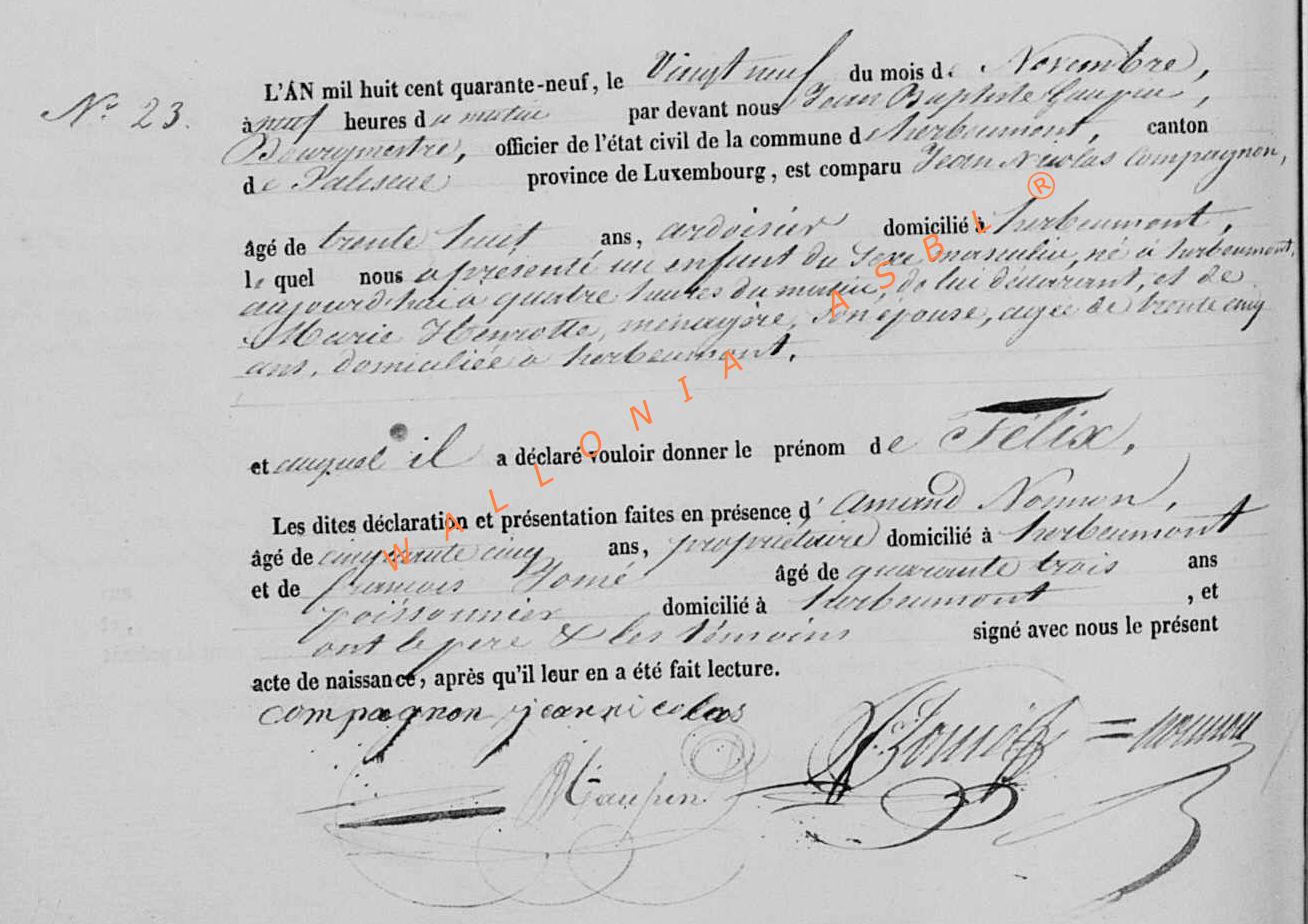 N° 23.
L'AN mil huit cent quarante-neuf, le Vingt neuf du mois de Novembre,
à neuf heures du matin par devant nous Jean Baptiste
Bourgmestre, officier de l'état civil de la commune d'herbeumont, canton
de Paliseul province de Luxembourg, est comparu Jean Nicolas Compagnon,
âgé de trente huit ans, ardoisier domicilié à herbeumont,
lequel nous a présenté un enfant du Sexe masculin, né à herbeumont,
aujourd'hui à quatre heures du matin, de lui déclarant, et de
Marie Henrotte, ménagère, son épouse, agée de trente cinq
ans, domiciliée à herbeumont.
et auquel il a déclaré vouloir donner le prénom de Félix.
Les dites déclaration et présentation faites en présence d'amand Noman,
âgé de cinquante cinq ans, propriétaire domicilié à herbeumont
et de françois Tomé âgé de quarante trois ans
poissonnier domicilié à herbeumont, et
ont le père & les témoins signé avec nous le présent
acte de naissance, après qu'il leur en a été fait lecture.
compagnon jean nicolas
WALLONIA ASBL ®